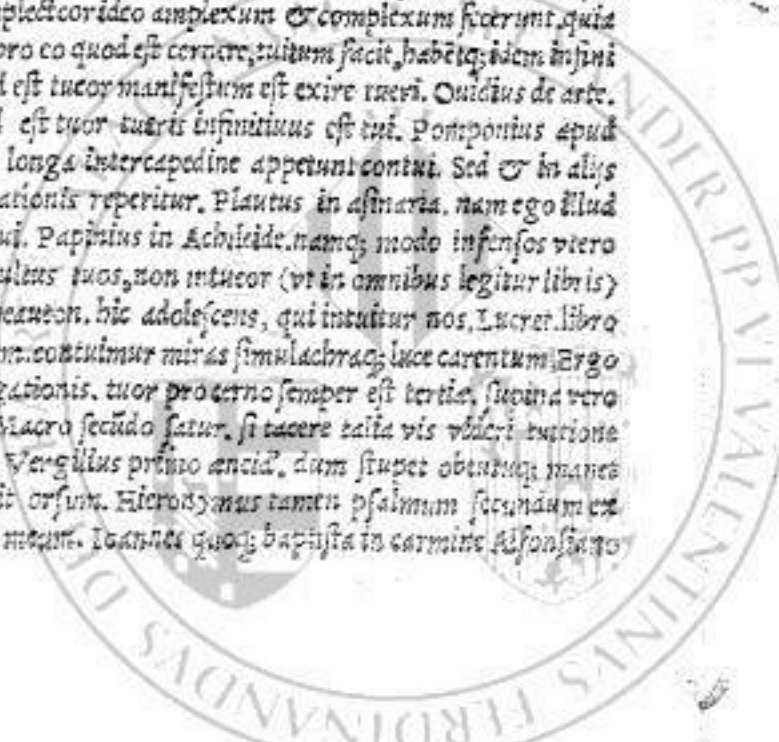 plector ideo amplexum & complexum fecerunt, quia
pro eo quod est cernere, tuitum facit, habetq; idem infini
est tueor manifestum est exire tueri. Ouidius de arte.
est tuor tueris infinitiuus est tui. Pomponius apud
longa intercapedine appetunt contui. Sed & in alijs
ationis reperitur. Plautus in asinaria. nam ego illud
ui. Papinius in Achileide. namq; modo infensos vtero
ultus tuos, non intueor (vt in omnibus legitur libris)
hic adolescens, qui intuitur nos. Lucret. libro
contuimur miras simulachraq; luce carentum. Ergo
gationis. tuor pro cerno semper est tertiæ. supina vero
Macro secūdo satur. si tacere talia vis videri
Vergilius primo æneid. dum stupet obtutuq; manet
it orsum. Hieronymus tamen psalmum secundum ex
meum. Ioannes quoq; baptista in carmine Alfonsiano
PP VI VALENTINVS FERDINANDVS